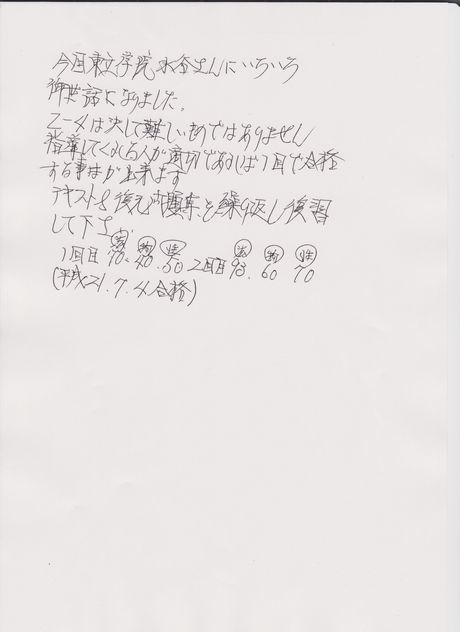 今回東立学院水谷さんにいろいろ
御世話になりました。
乙-4は決して難しいものではありません
指導してくれる人が適切であれば1回で合格
する事は出来ます
テキスト& 復元問題集を繰り返し復習
して下さい
1回目 法70. 物40. 性50 2回目 法93. 物60 性70
(平成21.7.4合格)